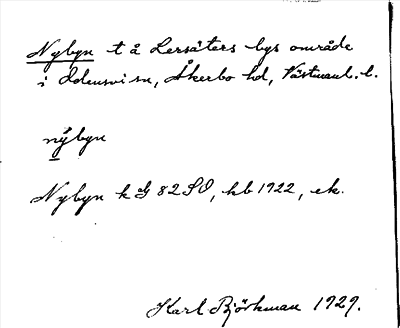 Nybyn t å Lersäters bys område
i Odensvi sn, Åkerbo hd, Västmanl. l.
nýbyn
Nybyn k G 82 SO, hb 1922, ek.
Karl Björkman 1929.